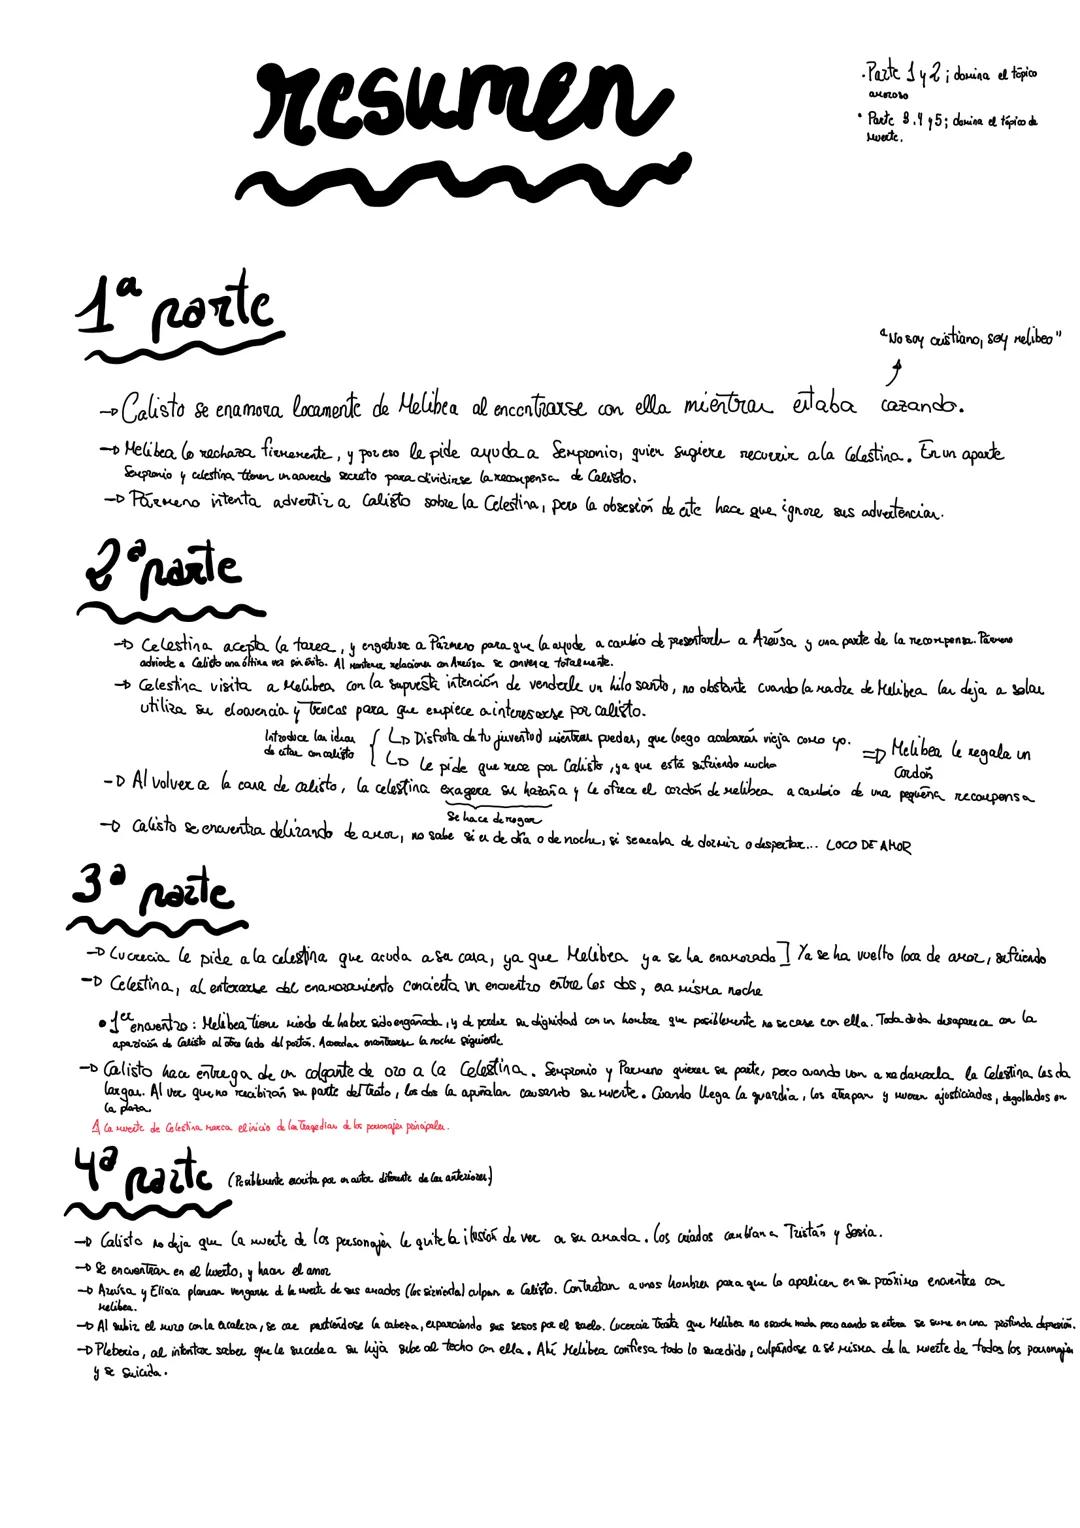 resumen
· Parte 1 y 2; domina el tópico
amoroso
· Parte 3.4 y 5; domina el tópico de
muerte.
1ª parte
"No soy cristiano, soy melibeo"
→ Calisto se enamora locamente de Melibea al encontrarse con ella mientras estaba cazando.
→ Melibea lo rechaza firmemente, y por eso le pide ayuda a Sempronio, quien sugiere recurrir a la Celestina. En un aparte
Sempronio y celestina tienen un acuerdo secreto para dividirse la recompensa de Calisto.
→ Pármeno intenta advertir a Calisto sobre la Celestina, pero la obsesión de éste hace que ignore sus advertencias.
2ª parte
→ Celestina acepta la tarea, y engatusa a Pármeno para que la ayude a cambio de presentarle a Areúsa y una parte de la recompensa. Pármeno
advierte a Calisto una última vez sin éxito. Al mantener relaciones con Areúsa se convence totalmente.
→ Celestina visita a Melibea con la supuesta intención de venderle un hilo santo, no obstante cuando la madre de Melibea las deja a solas
utiliza su elocuencia y trucos para que empiece a interesarse por calisto.
Introduce las ideas
de estar con calisto
↳ Disfruta de tu juventud mientras puedas, que luego acabarás vieja como yo.
↳ Le pide que rece por Calisto, ya que está sufriendo mucho
⇒ Melibea le regala un
Cordón
→ Al volver a la casa de calisto, la celestina exagera su hazaña y le ofrece el cordón de melibea a cambio de una pequeña recompensa
Se hace de rogar
→ Calisto se encuentra delirando de amor, no sabe si es de día o de noche, si se acaba de dormir o despertar... LOCO DE AMOR
3ª parte
→ Lucrecia le pide a la celestina que acuda a su casa, ya que Melibea ya se ha enamorado ] Ya se ha vuelto loca de amor, sufriendo
→ Celestina, al enterarse del enamoramiento concierta un encuentro entre los dos, esa misma noche
• 1er encuentro: Melibea tiene miedo de haber sido engañada, y de perder su dignidad con un hombre que posiblemente no se case con ella. Toda duda desaparece con la
aparición de Calisto al otro lado del portón. Acuerdan encontrarse la noche siguiente
→ Calisto hace entrega de un colgante de oro a la Celestina. Sempronio y Parmeno quieren su parte, pero cuando van a reclamarla la Celestina les da
largas. Al ver que no recibirán su parte del trato, los dos la apuñalan causando su muerte. Cuando llega la guardia, los atrapan y mueren ajusticiados, degollados en
la plaza.
⚠ La muerte de Celestina marca el inicio de las tragedias de los personajes principales.
4ª parte (Posiblemente escrita por un autor diferente de las anteriores)
→ Calisto no deja que la muerte de los personajes le quite la ilusión de ver a su amada. Los criados cambian a Tristán y Sosia.
→ Se encuentran en el huerto, y hacen el amor
→ Areúsa y Elicia planean vengarse de la muerte de sus amados (los sirvientes) culpan a Calisto. Contratan a unos hombres para que lo apalicen en su próximo encuentro con
Melibea.
→ Al subir el muro con la escalera, se cae partiéndose la cabeza, esparciendo sus sesos por el suelo. Lucrecia trata que Melibea no escuche nada pero cuando se entera se sume en una profunda depresión.
→ Pleberio, al intentar saber que le sucede a su hija sube al techo con ella. Ahí Melibea confiesa todo lo sucedido, culpándose a sí misma de la muerte de todos los personajes
y se suicida.